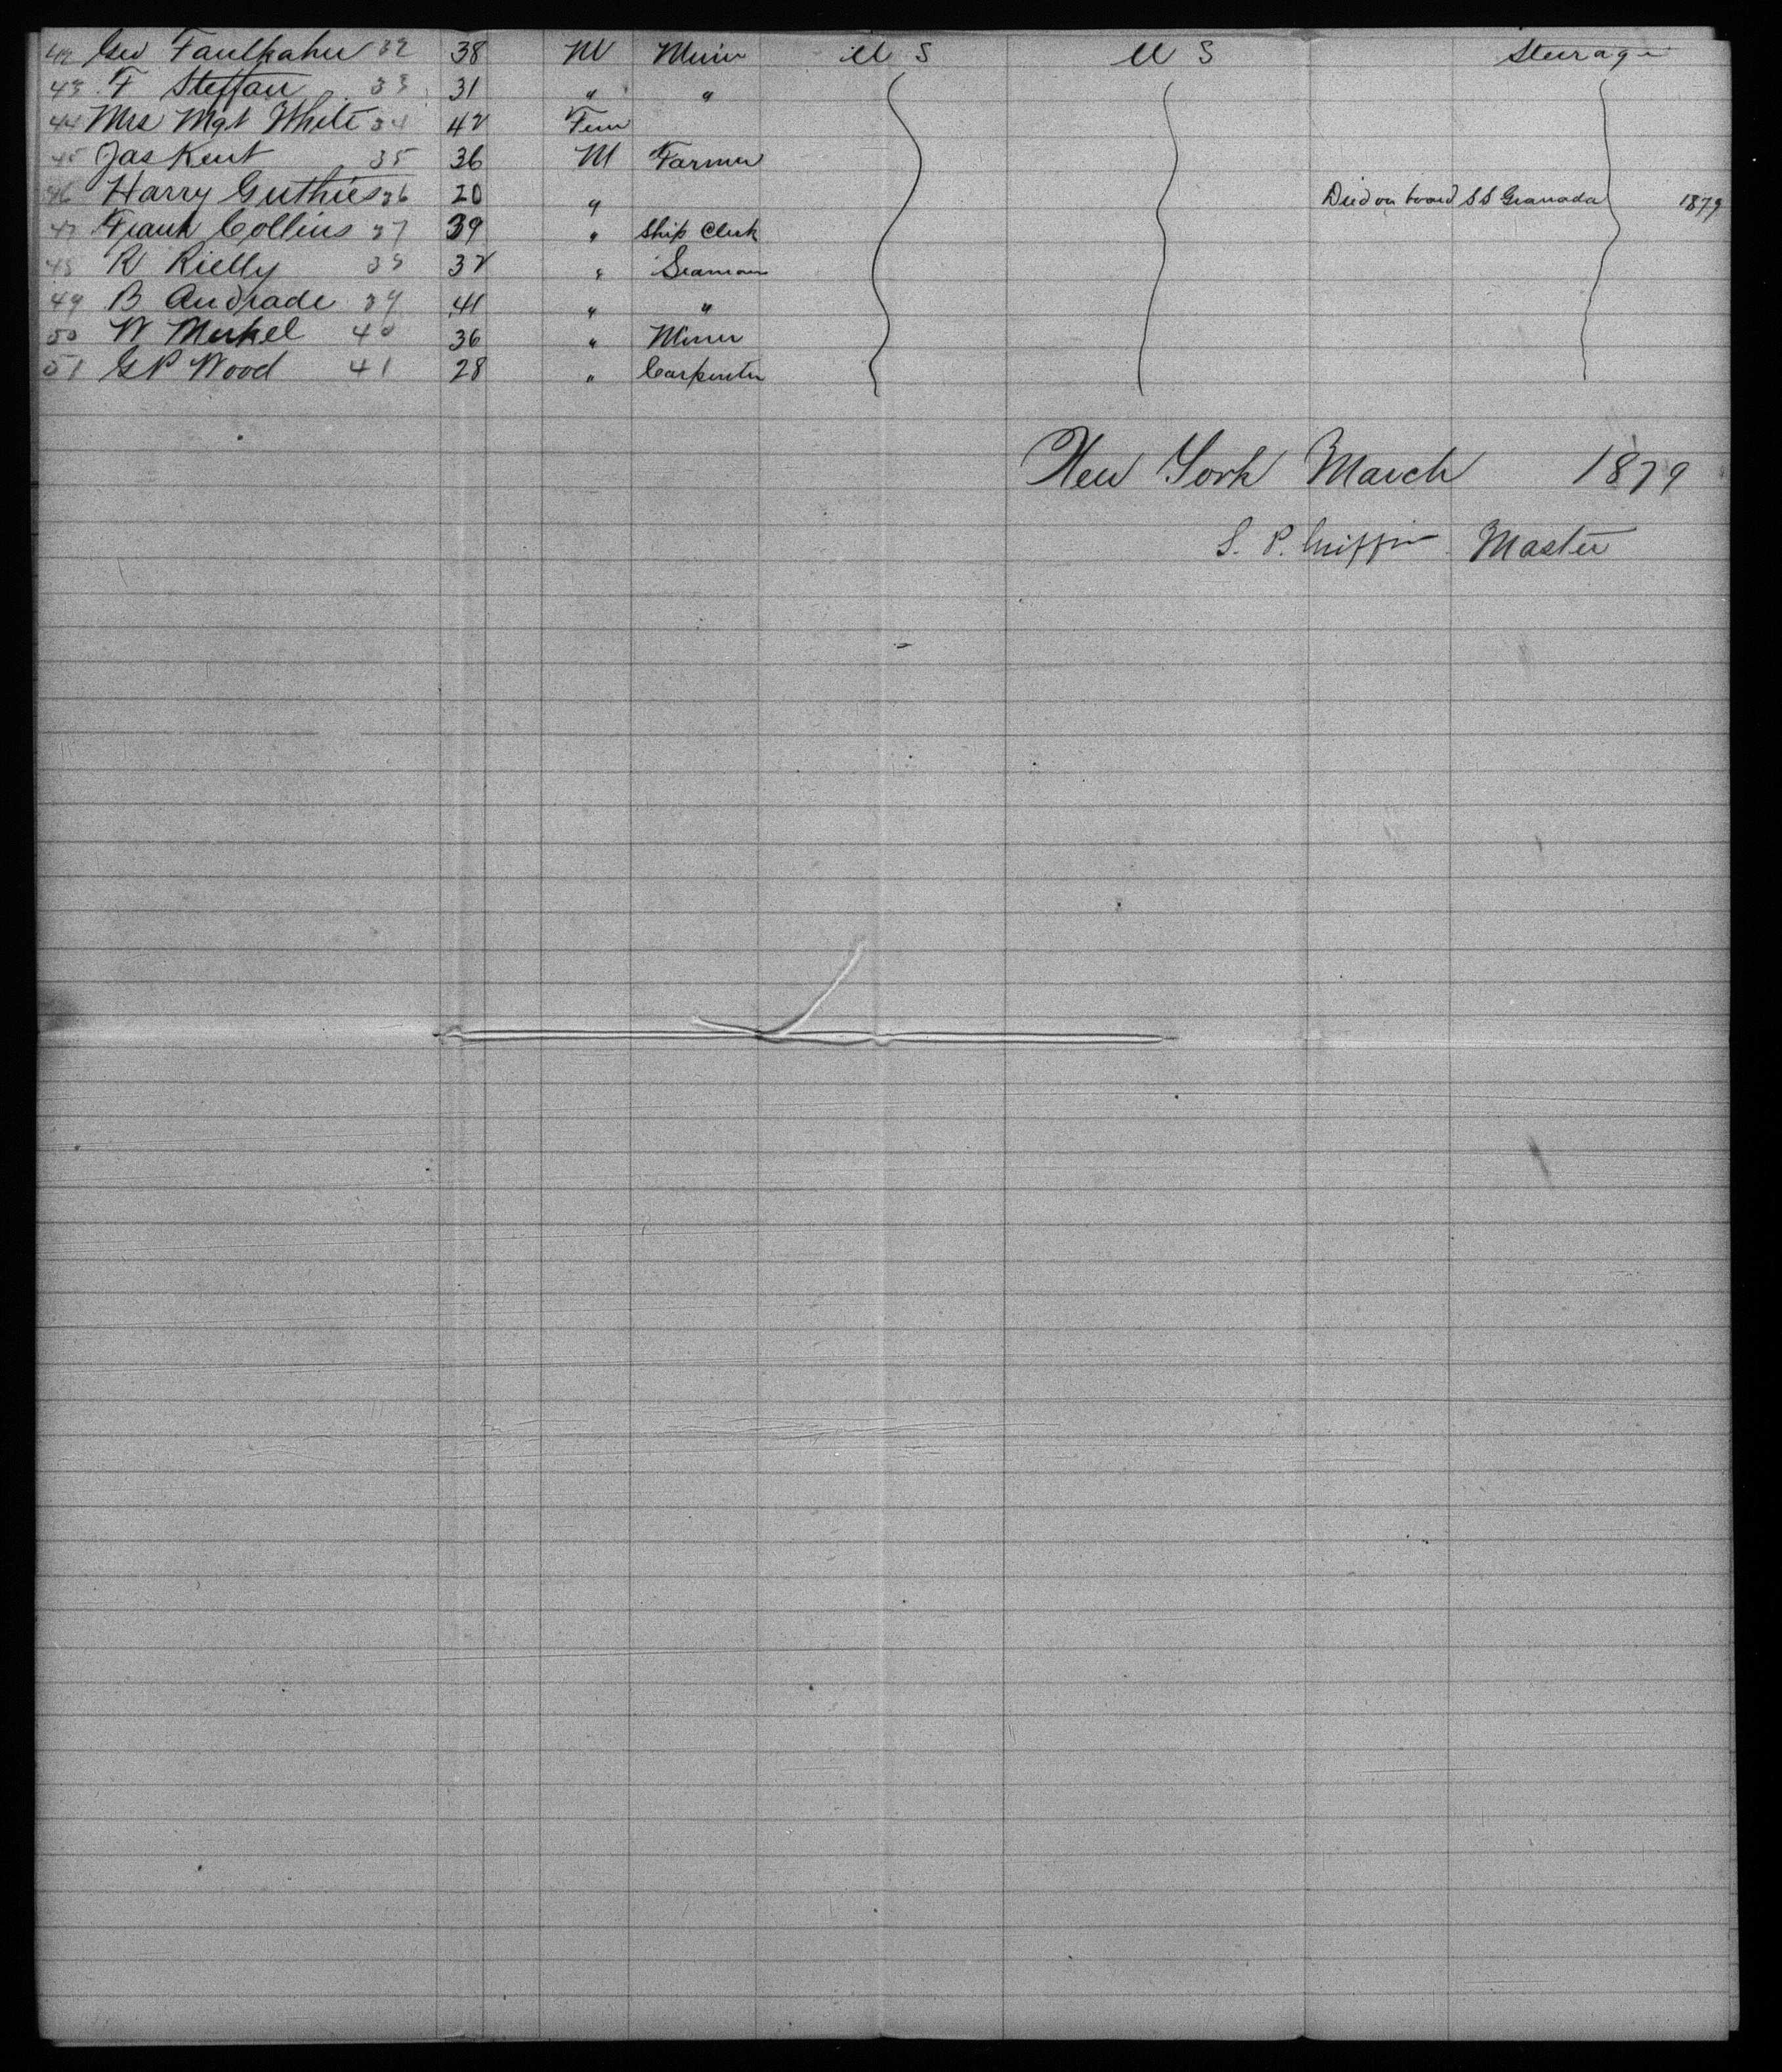 42 Geo Faulkahn 32 38 M Miner U S U S Steerage
43 F Steffan 33 31 " "
44 Mrs Mgt White 34 42 Fem
45 Jas Kent 35 36 M Farmer
46 Harry Guthries 36 20 " Died on board S S Granada 1879
47 Frank Collins 37 39 " Ship Clerk
48 R Rielly 38 32 " Seaman
49 B Andrade 39 41 " "
50 W Merkel 40 36 " Miner
51 G P Wood 41 28 " Carpenter
New York March 1879
S. P. Griffin Master